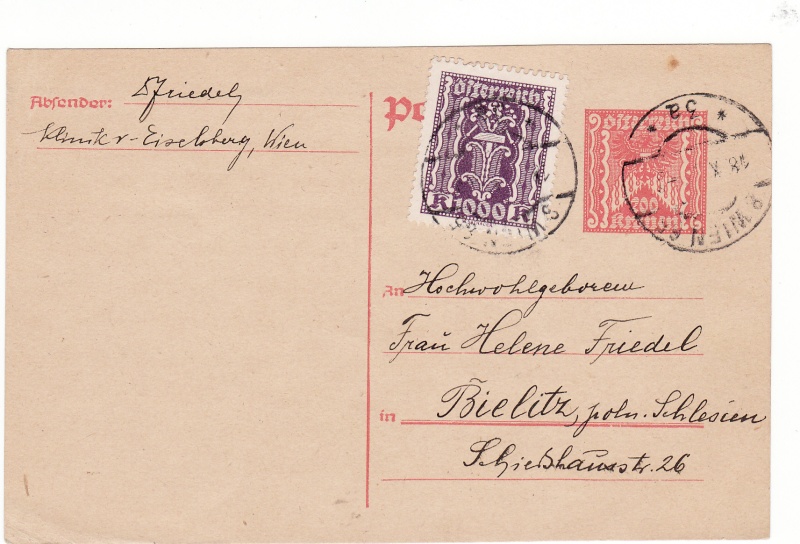 Absender: Friedel
Klinik v. Eiselsberg, Wien
Po
Österreich
1000
K K
Österreich
200
Kronen
9 WIEN
9 WIEN
18. X
An Hochwohlgeboren
Frau Helene Friedel
in Bielitz, poln. Schlesien
Schießhausstr. 26